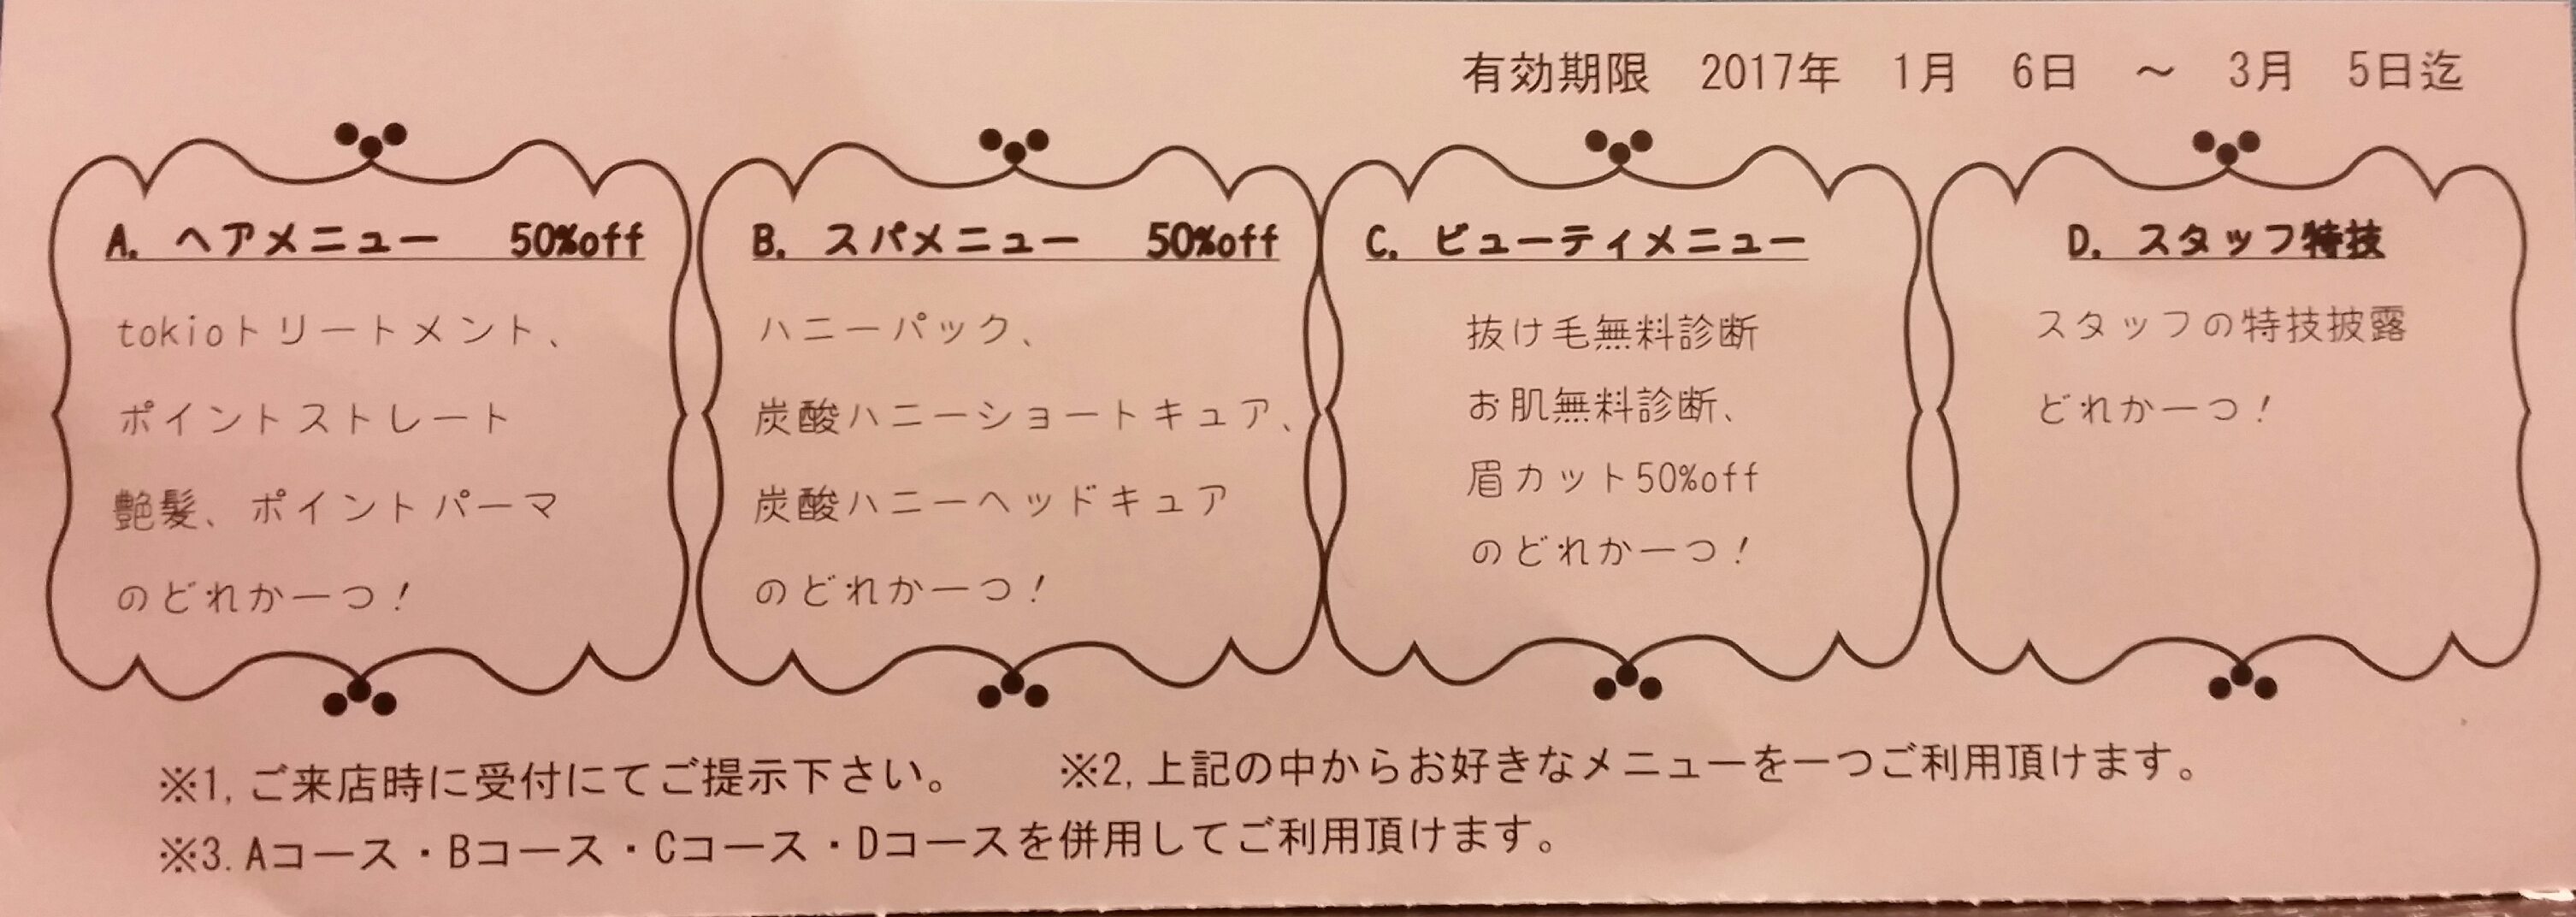 有効期限 2017年 1月 6日 ～ 3月 5日迄
A. ヘアメニュー 50%off
tokioトリートメント、
ポイントストレート
艶髪、ポイントパーマ
のどれか一つ！
B. スパメニュー 50%off
ハニーパック、
炭酸ハニーショートキュア、
炭酸ハニーヘッドキュア
のどれか一つ！
C. ビューティメニュー
抜け毛無料診断
お肌無料診断、
眉カット50%off
のどれか一つ！
D. スタッフ特技
スタッフの特技披露
どれか一つ！
※1,ご来店時に受付にてご提示下さい。 ※2,上記の中からお好きなメニューを一つご利用頂けます。
※3.Aコース・Bコース・Cコース・Dコースを併用してご利用頂けます。